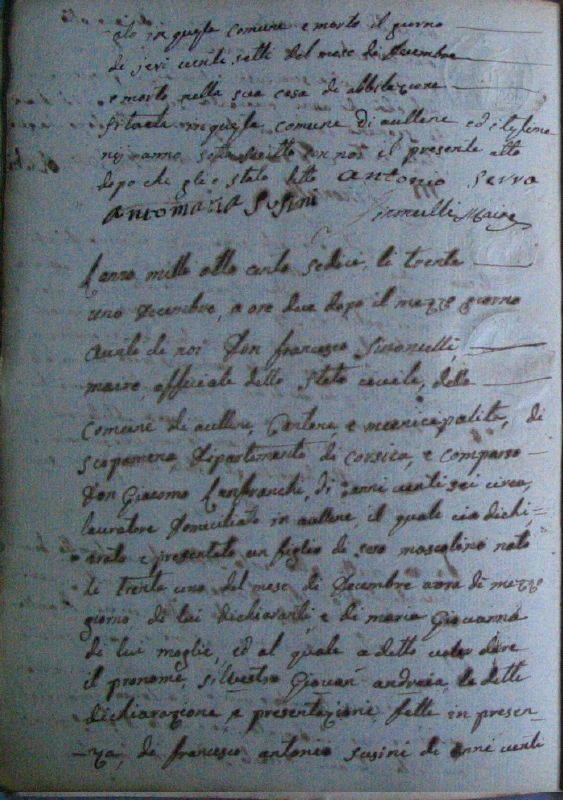 ato in questa comune e morto il giorno
di jeri venti sette del mese di Decembre
e morto nella sua casa di abbitazione
situata in questa comune di aullene ed i testimo
nj anno sotto scritto con noi il presente atto
dopo che gli e stato letto antonio serra
antomaria susini Simonelli Maire
L'anno mille otto cento sedici, li trenta
uno Decembre, a ore due dopo il mezzo giorno
avanti de noi Don francesco Simonelli,
maire, officiale dello stato civile, della
comune di aullene, Cantone e municipalità, di
scopamena, Dipartimento di Corsica, e comparso
Don Giacomo Lanfranchi, di anni venti sei circa,
lauratore Domiciliato in aullene, il quale cia dichi=
arato e presentato un figlio di seso mascolino nato
li trenta uno del mese di Decembre aora di mezzo
giorno di lui dichiarante, e di maria Giovanna
di lui moglie, ed al quale a detto voler dare
il pronome, silvestro Giovan andrea, le dette
dichiarazione, e presentazione fatte in presen=
=za, di francesco antonio susini di anni venti